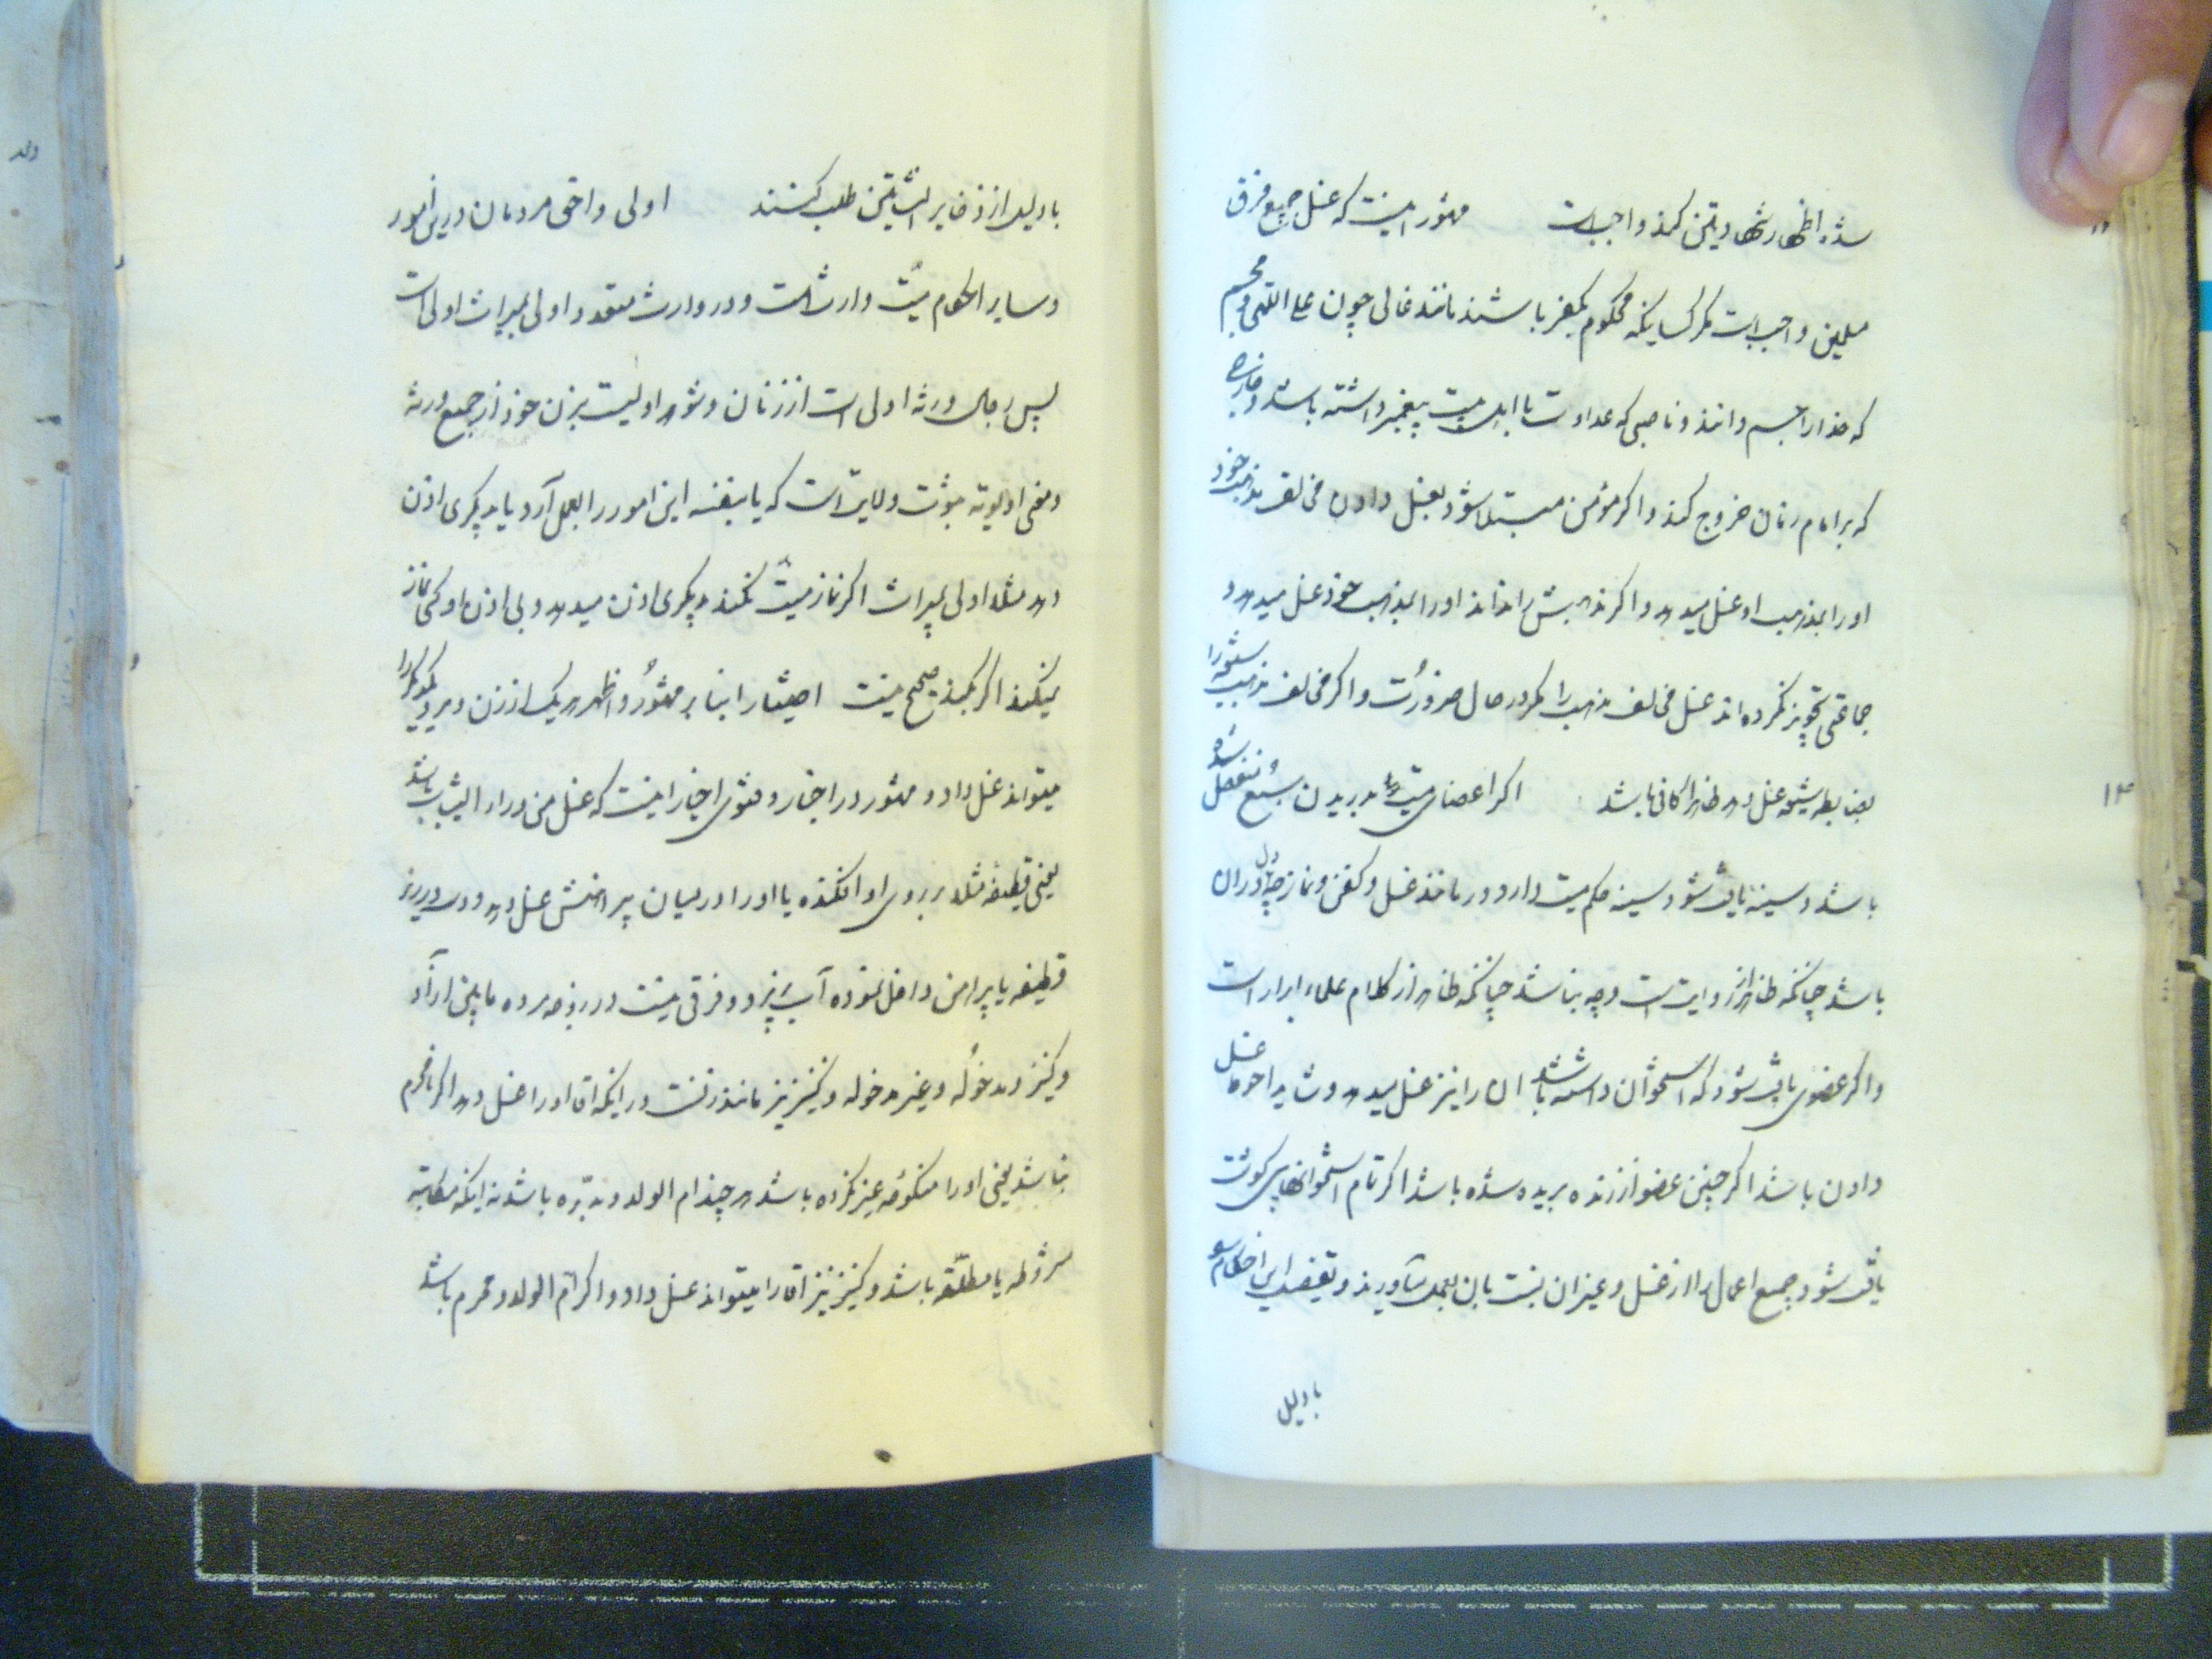 شده اظهار شهادتین کند واجبست مشهور اینست که غسل جمیع فرق
مسلمین واجبست مگر کسانیکه محکوم بکفر باشند مانند غالی چون علی اللهی و مجسم
که خدا را جسم دانند و ناصبی که عداوت با اهل بیت پیغمبر داشته باشد و خارجی
که بر امام زمان خروج کند و اگر مؤمن مبتلا شود بغسل دادن مخالف مذهب خود
او را بمذهب او غسل میدهد و اگر مذهبش را نداند او را بمذهب خود غسل میدهد و
جماعتی تجویز نکرده‌اند غسل مخالف مذهب را مگر در حال ضرورت و اگر مخالف مذهب شیعه را
بضابطه شیعه غسل دهد ظاهرا کافی باشد اگر اعضای میت بدریدن سبع منفصل شده
باشد و سینه یافت شود سینه حکم میت دارد در مانند غسل و کفن و نماز چه دل در ان
باشد چنانکه ظاهر از روایت است و چه نباشد چنانکه ظاهر از کلام علماء ابرار است
و اگر عضوی یافت شود که استخوان داشته باشد ان را نیز غسل میدهد و شاید احوط غسل
دادن باشد اگر چنین عضو از زنده بریده شده باشد اگر تمام استخوانهای بی کوشت
یافت شود جمیع اعمال را از غسل و غیر ان نسبت بان بعمل میآورند و تفصیل این احکام
بادلیل
بادلیل از ذخایر التبیین طلب کنند اولی و احق مردمان در این امور
و سایر احکام میت وارث است و در وارث متعدد اولی بمیراث اولی است
پس رجال ورثه اولی است از زنان و شوهر اولیست بزن خود از جمیع ورثه
و معنی اولویت ثبوت ولایت است که یا بنفسه این امور را بعمل آرد یا بدیکری اذن
دهد مثلا اولی بمیراث اکر نماز میت نکند بدیکری اذن میدهد و بی اذن او کسی نماز
نمیکند اکر بکند صحیح نیست اختیارا بنا بر مشهور و اظهر هر یک از زن و مرد یکدیگر را
میتواند غسل داد و مشهور در اخبار و فتوی اخیار اینست که غسل من وراء الثیاب باشد
یعنی قطیفه مثلا بر روی او افکنده یا او را در میان پیراهنش غسل دهد و دست در زیر
قطیفه یا پیراهن داخل نموده آب بریزد و فرقی نیست در زوجه مرده مابین آزاد
و کنیز و مدخوله و غیر مدخوله و کنیز نیز مانند زنست در اینکه آقا او را غسل دهد اکر نامحرم
نباشد یعنی او را منکوحه غیر نکرده باشد هر چند ام الولد و مدبره باشد نه اینکه مکاتبه
مشروطه یا مطلقه باشد و کنیز نیز آقا را میتواند غسل داد و اکر ام الولد و محرم باشد